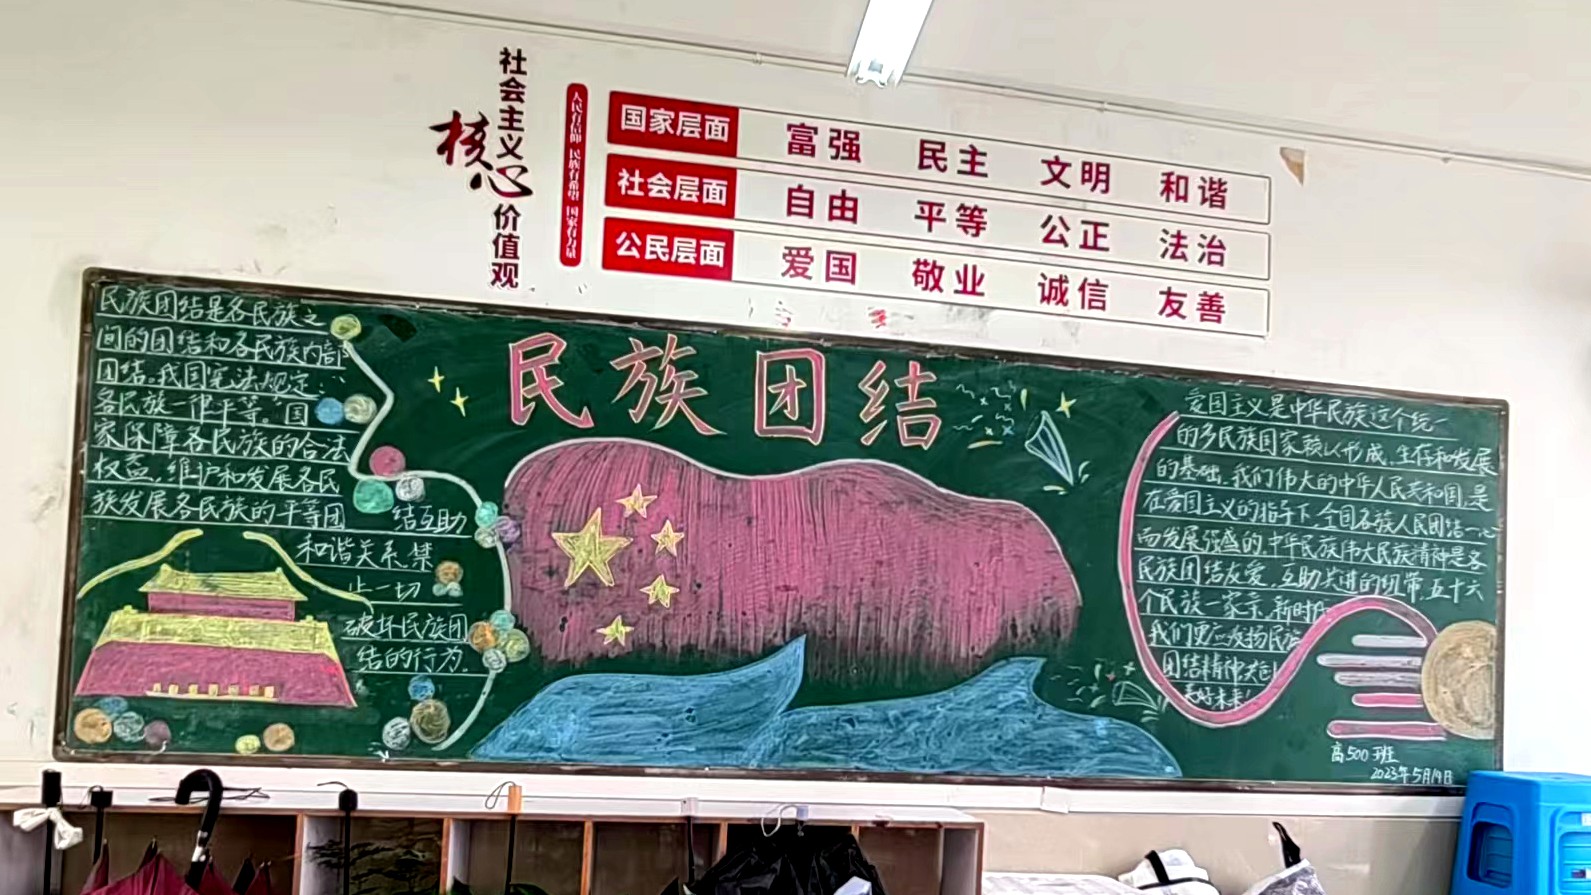 社会主义
核心
价值观
人民有信仰 民族有希望 国家有力量
国家层面 富强 民主 文明 和谐
社会层面 自由 平等 公正 法治
公民层面 爱国 敬业 诚信 友善
民族团结
民族团结是各民族之
间的团结和各民族内部
团结。我国宪法规定：
各民族一律平等。国
家保障各民族的合法
权益，维护和发展各民
族发展各民族的平等团
结互助
和谐关系.禁
止一切
破坏民族团
结的行为。
爱国主义是中华民族这个统一
的多民族国家赖以形成、生存和发展
的基础。我们伟大的中华人民共和国，是
在爱国主义的指导下，全国各族人民团结一心
而发展强盛的。中华民族伟大民族精神是各
民族团结友爱，互助共进的纽带，五十六
个民族一家亲，新时
我们更应发扬民族
团结精神,
美好未来!
高500班
2023年5月19日